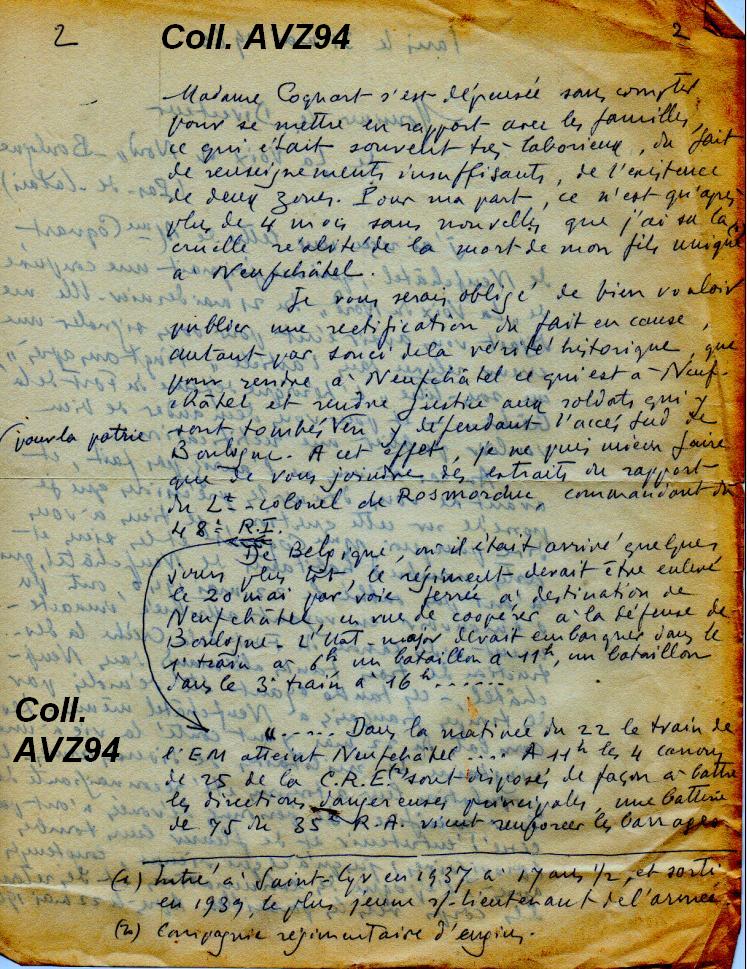 2 Coll. AVZ94 2
Madame Coquart s'est dépensée sans compter
pour se mettre en rapport avec les familles,
ce qui était souvent très laborieux, du fait
de renseignements insuffisants, de l'existence
de deux zones. Pour ma part, ce n'est qu'après
plus de 4 mois sans nouvelles que j'ai su la
cruelle réalité de la mort de mon fils unique
à Neufchâtel.
Je vous serais obligé de bien vouloir
publier une rectification du fait en cause,
autant par souci de la vérité historique, que
pour rendre à Neufchâtel ce qui est à Neuf-
châtel et rendre justice aux soldats qui y
sont tombés en y défendant l'accès Sud de
pour la patrie
Boulogne. A cet effet, je ne puis mieux faire
que de vous joindre des extraits du rapport
du Lt-Colonel de Rosmorduc commandant du
48e R.I.
De Belgique, où il était arrivé quelques
jours plus tôt, le régiment devait être enlevé
le 20 mai par voie ferrée à destination de
Neufchâtel, en vue de coopérer à la défense de
Boulogne. L'Etat-major devait embarquer dans le
1er train à 6h un bataillon à 11h, un bataillon
dans le 3e train à 16h .......
"..... Dans la matinée du 22 le train de
Coll.
AVZ94
l'EM atteint Neufchâtel .... A 11h les 4 canons
de 25 de la C.R.E. sont disposés de façon à battre
les directions dangereuses principales, une batterie
de 75 du 35e R.A. vient renforcer les barrages
(1) Entré à Saint-Cyr en 1937 à 17 ans 1/2, et sorti
en 1939, le plus jeune s/-lieutenant de l'armée.
(2) Compagnie régimentaire d'engins.